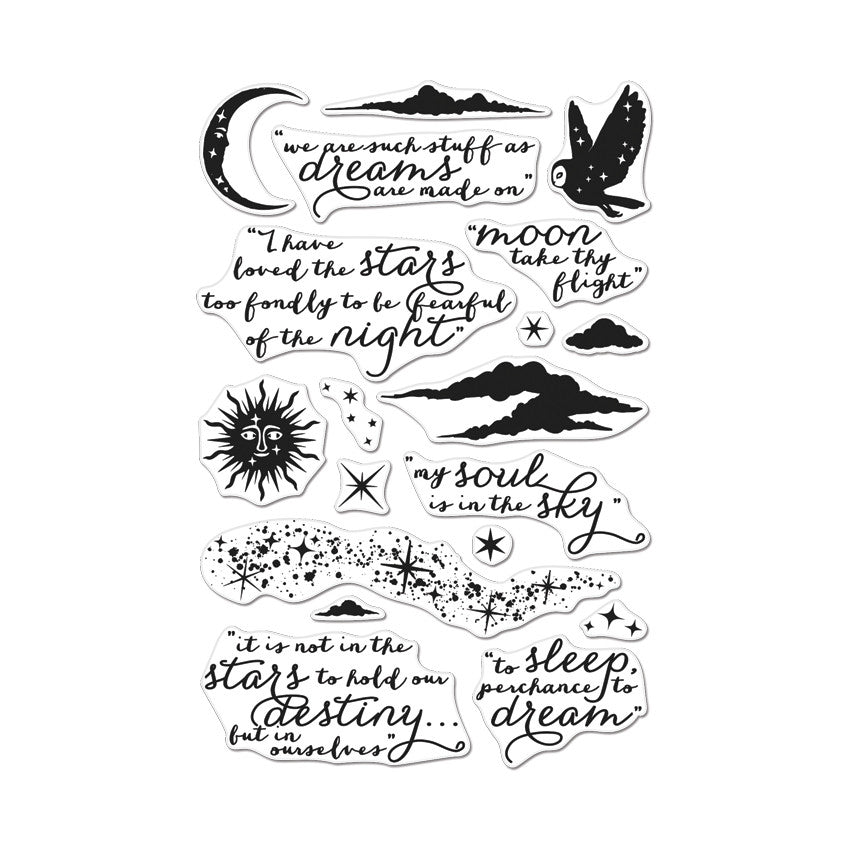 "we are such stuff as
dreams
are made on"
"I have
loved the stars
too fondly to be fearful
of the night"
"moon
take thy
flight"
"my soul
is in the sky"
"it is not in the
stars to hold our
destiny...
but in
ourselves"
"to sleep,
perchance to
dream"